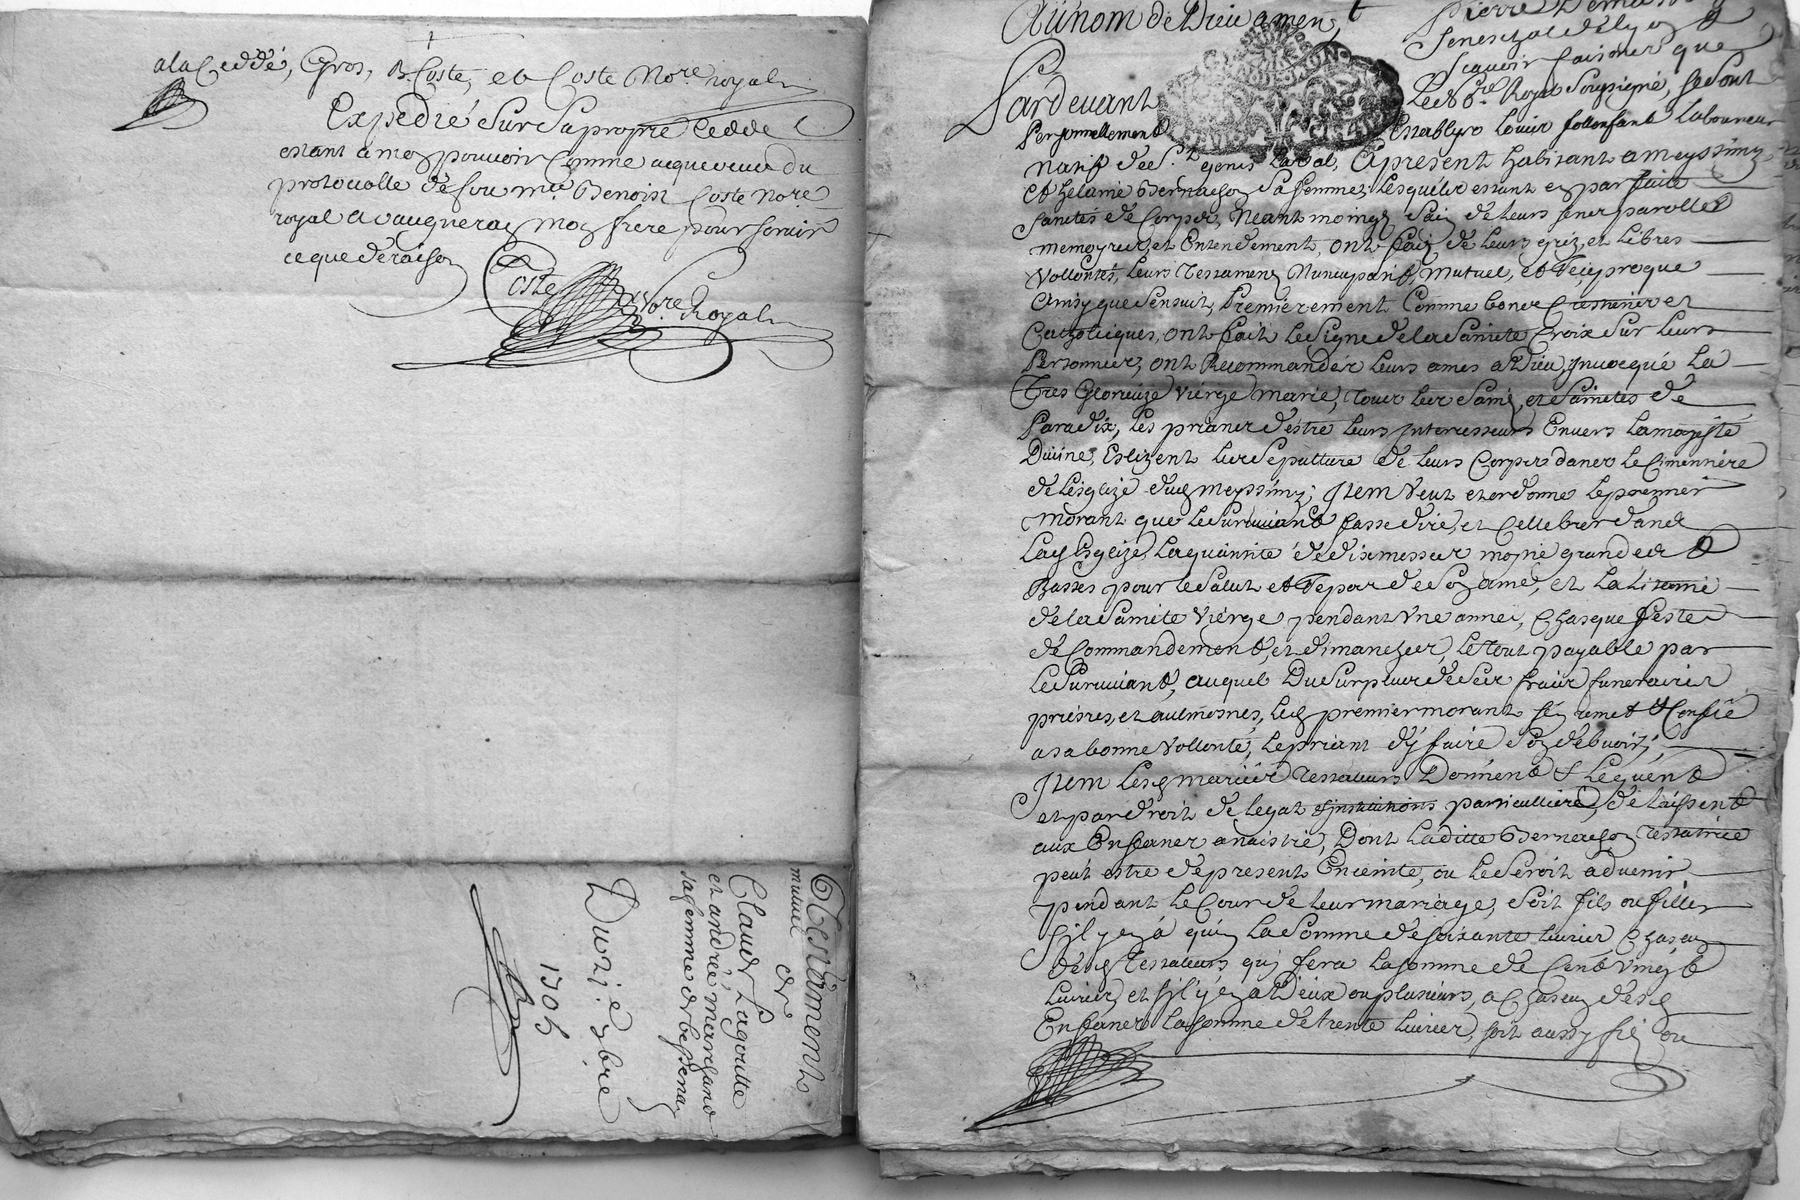 a la Cedde, Gros, B. Coste, et Coste No.re royal
Expedié Sur Sa propre Cedde
estant a mo pouvoir Comme acquereur du
protocolle de feu m.e Benoist Coste No.re
royal a vaugneray mon frere pour servir
ce que de raison
Coste No.re Royal
Testament
mutuel de
Claude Lagoutte
et andrée marchand
sa femme de bessena
Du xi.e xbre
1706
Au nom de Dieu amen,
Pierre
Seneschal de Lyon
Scavoir faisons que
Pardevant
Le No.re Royal Soussigné, se Sont
Personnellement Establys Louis follenfant Laboureur
natif de S.t genis Laval, a present habitant a meyssimy
Et helaine Bernachon Sa femme, Lesquels estant en parfaite
Santés de Corps, Neantmoings Sain de Leurs sens, parolles
memoyres, et Entendement, ont fait de Leurs grez, et Libres
Vollontés, Leurs testament Nuncupatif, Mutuel, et Reciproque
Ainsy que Sensuit, Premierement Comme bons Crestiens et
Catholicques, ont fait Le Signe de la Sainte Croix Sur Leurs
Personnes, ont Recommandés Leurs ames a Dieu, Invocqué La
Tres Glorieuze Vierge marie, tous Les Saints, et Saintes de
Paradix, Les prians d'estre Leurs Intercesseurs Envers La majesté
Divine, Eslizent Les Sepulture de Leurs Corps dans Le Cimentière
de L'esglize dud. meyssimy; Item Veut et ordonne Le premier
morant que Le Survivant fasse dire, et Cellebrer dans
Lad. Esglize, La quantité de dix messes moitié grandes et
Basses pour Le Salut et Repos de Son ame, et La Litanie
de la Sainte Vierge pendant Une année, Chasque festes
de Commandement, et dimanches, Le tout payable par
Le Survivant, auquel Du Surplus de Ses fraix funeraires
prieres, et aulmosnes, Led. premier morant s'en remet et Confie
a sa bonne Vollonté, Le priant d'y faire Son debvoir;
Item Lesd. mariés Testateurs Donnent et Leguent
et par droit de Legat et institutions particulliere, delaissent
aux Enfans a naistre, Dont Laditte Bernachon testatrice
peut estre de present Enceinte, ou Le Seroit advenir
pendant Le Cour de Leur mariage, Soit fils ou filles
S'il y en a qu'un La Somme de Soixante Livres Chascun
desd. Testateurs qui fera La Somme de Cent Vingt
Livres, et S'il y en a Deux ou plusieurs, a Chascun desd.
Enfans La Somme de trente Livres, soit aussy fils ou